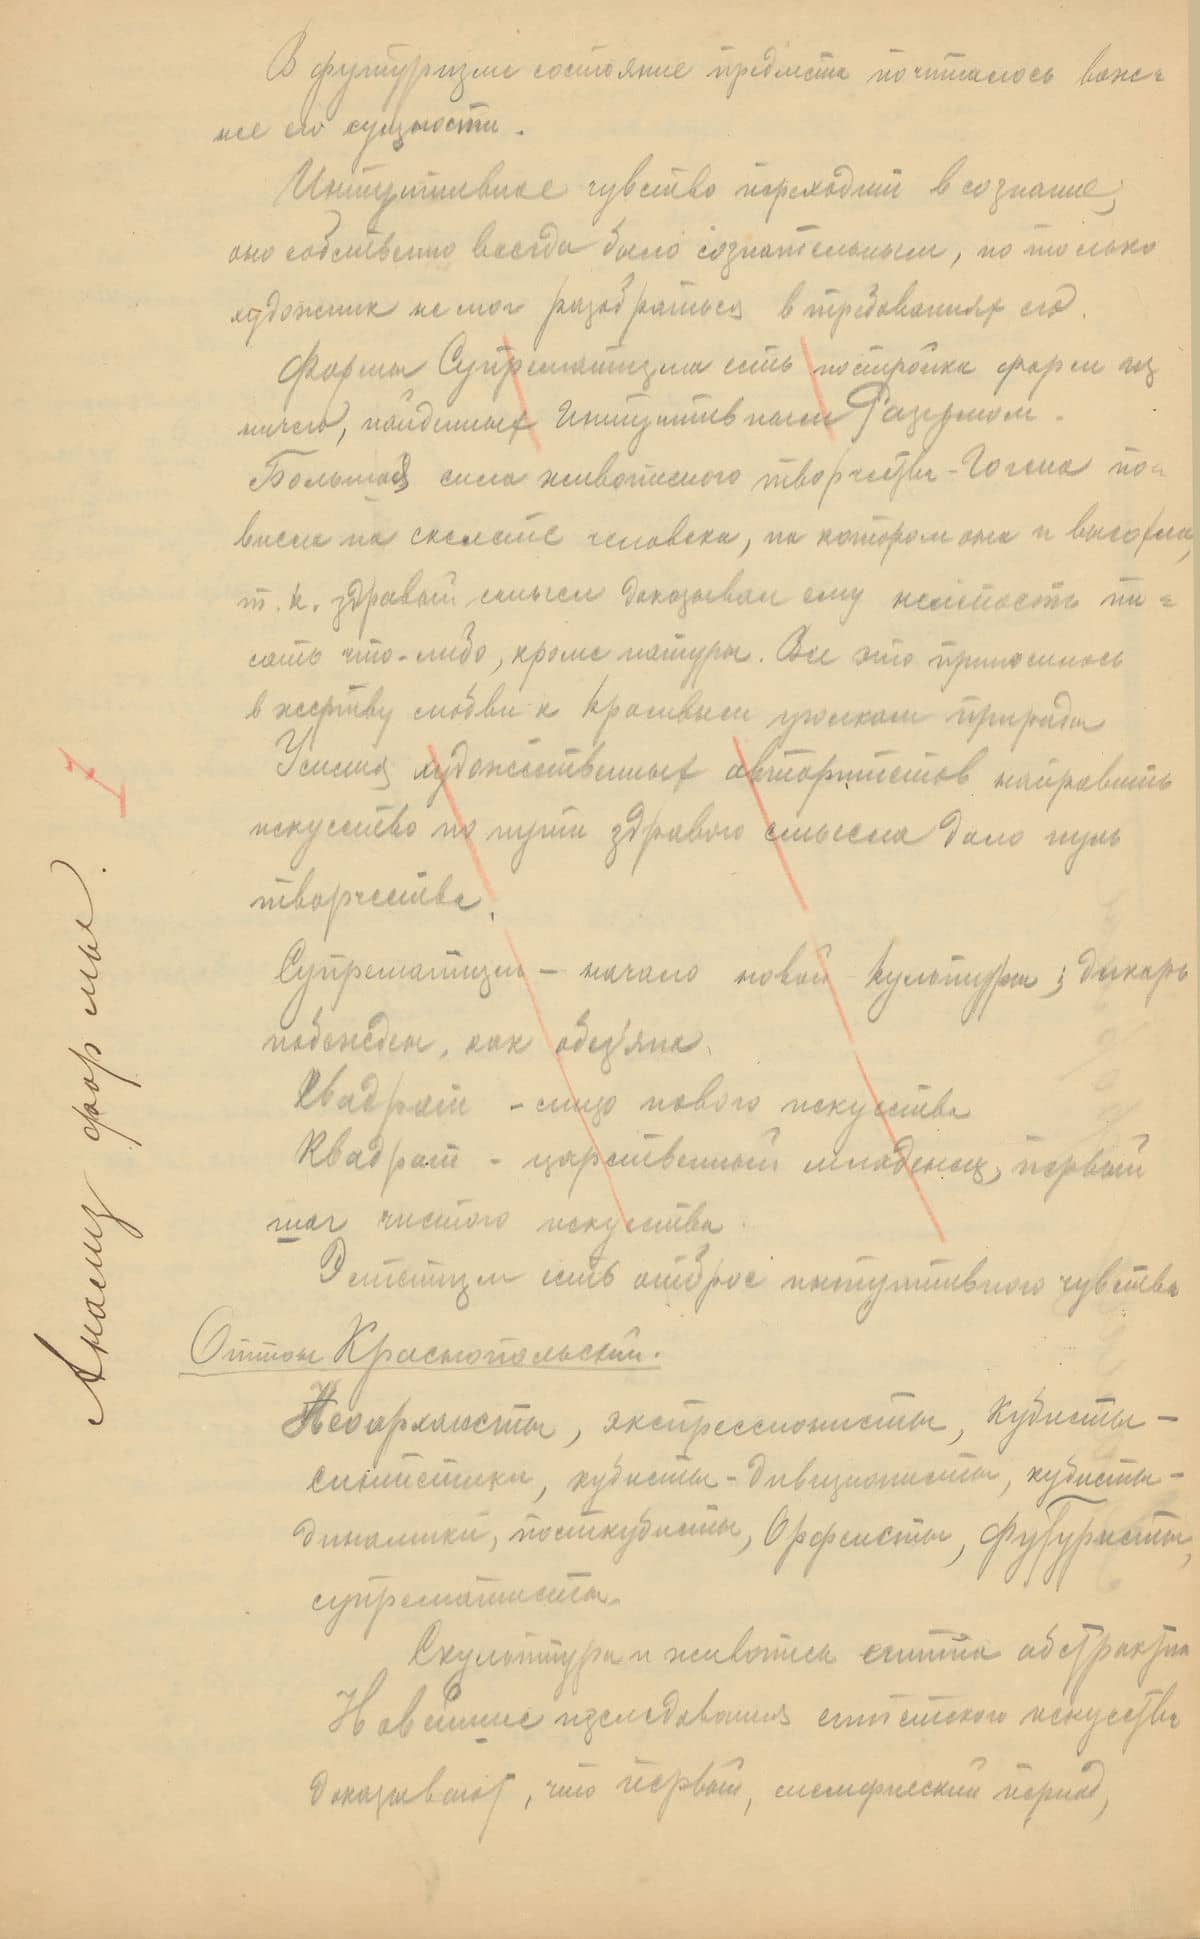 В футуризме состояние предмета почиталось важ-
нее его сущности.
Интуитивное чувство переходит в сознание,
оно собственно всегда было сознательным, но только
художник не мог разобраться в требованиях его.
Формы Супрематизма есть постройка форм из
ничего, найденных Интуитивным Разумом.
Большая сила живописного творчества – Гогена по-
висла на скелете человека, на котором она и высохла,
т.к. здравый смысл доказывал ему нелепость пи-
сать что-либо, кроме натуры. Все это приносилось
в жертву любви к красивым уголкам природы
Усилия художественных авторитетов направить
искусство по пути здравого смысла дало нуль
творчества.
Супрематизм – начало новой культуры; дикарь
побежден, как обезьяна.
Квадрат – лицо нового искусства
Квадрат – царственный младенец, первый
шаг чистого искусства.
Эстетизм есть отброс интуитивного чувства
Оттоны Краснопольский.
Неоархаисты, экспрессионисты, кубисты –
синтетики, кубисты – дивизионисты, кубисты –
динамики, посткубисты, Орфеисты, футуристы,
супрематисты.
Скульптура и живопись египта абстрактна
Новейшие изследования египетского искусства
доказывают, что первый, мемфисский период,
Анализ формы.
7